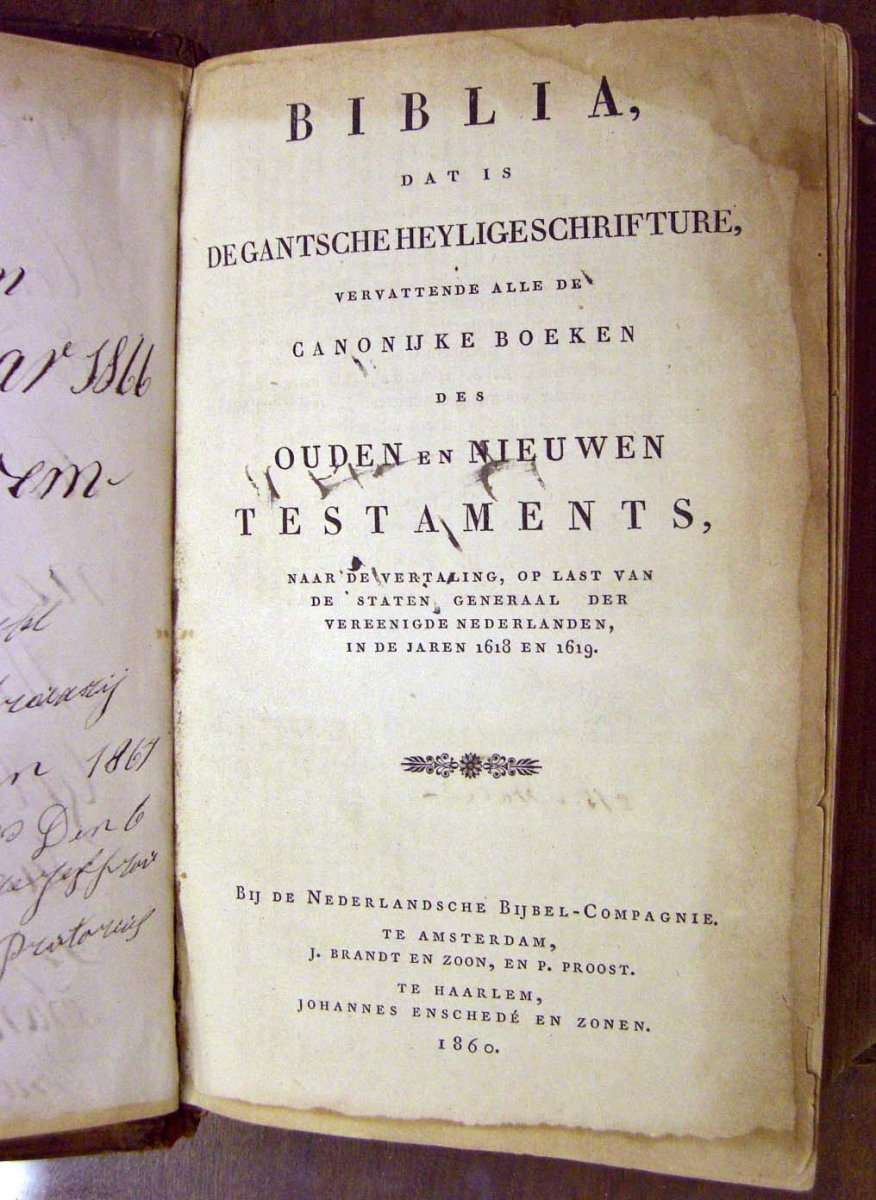 1866
1867
Den 6
BIBLIA,
DAT IS
DE GANTSCHE HEYLIGE SCHRIFTURE,
VERVATTENDE ALLE DE
CANONIJKE BOEKEN
DES
OUDEN EN NIEUWEN
TESTAMENTS,
NAAR DE VERTALING, OP LAST VAN
DE STATEN GENERAAL DER
VEREENIGDE NEDERLANDEN,
IN DE JAREN 1618 EN 1619.
BIJ DE NEDERLANDSCHE BIJBEL-COMPAGNIE.
TE AMSTERDAM,
J. BRANDT EN ZOON, EN P. PROOST.
TE HAARLEM,
JOHANNES ENSCHEDÉ EN ZONEN.
1860.